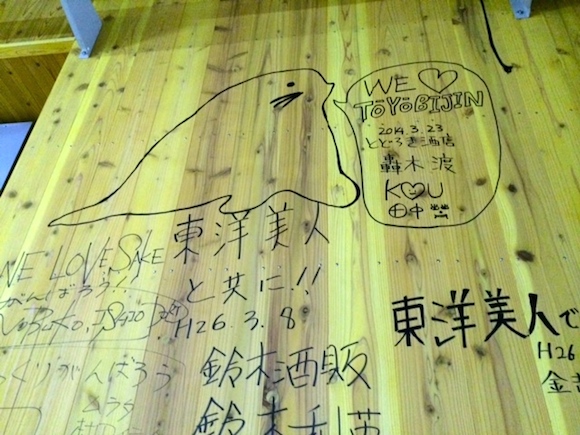 WE ♡
TOYOBIJIN
2014.3.23
とどろき酒店
轟木 渡
KOU
田中
東洋美人
と共に!!
H26.3.8
鈴木酒販
WE LOVE SAKE
がんばろう!!
東洋美人で
H26
くりがんばろう